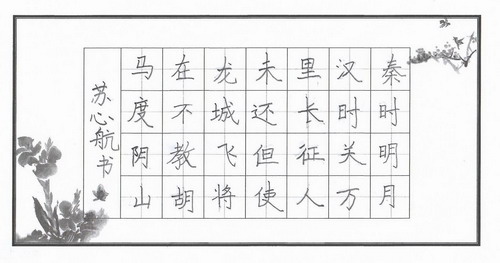 秦时明月
汉时关万
里长征人
未还但使
龙城飞将
在不教胡
马度阴山
苏心航书